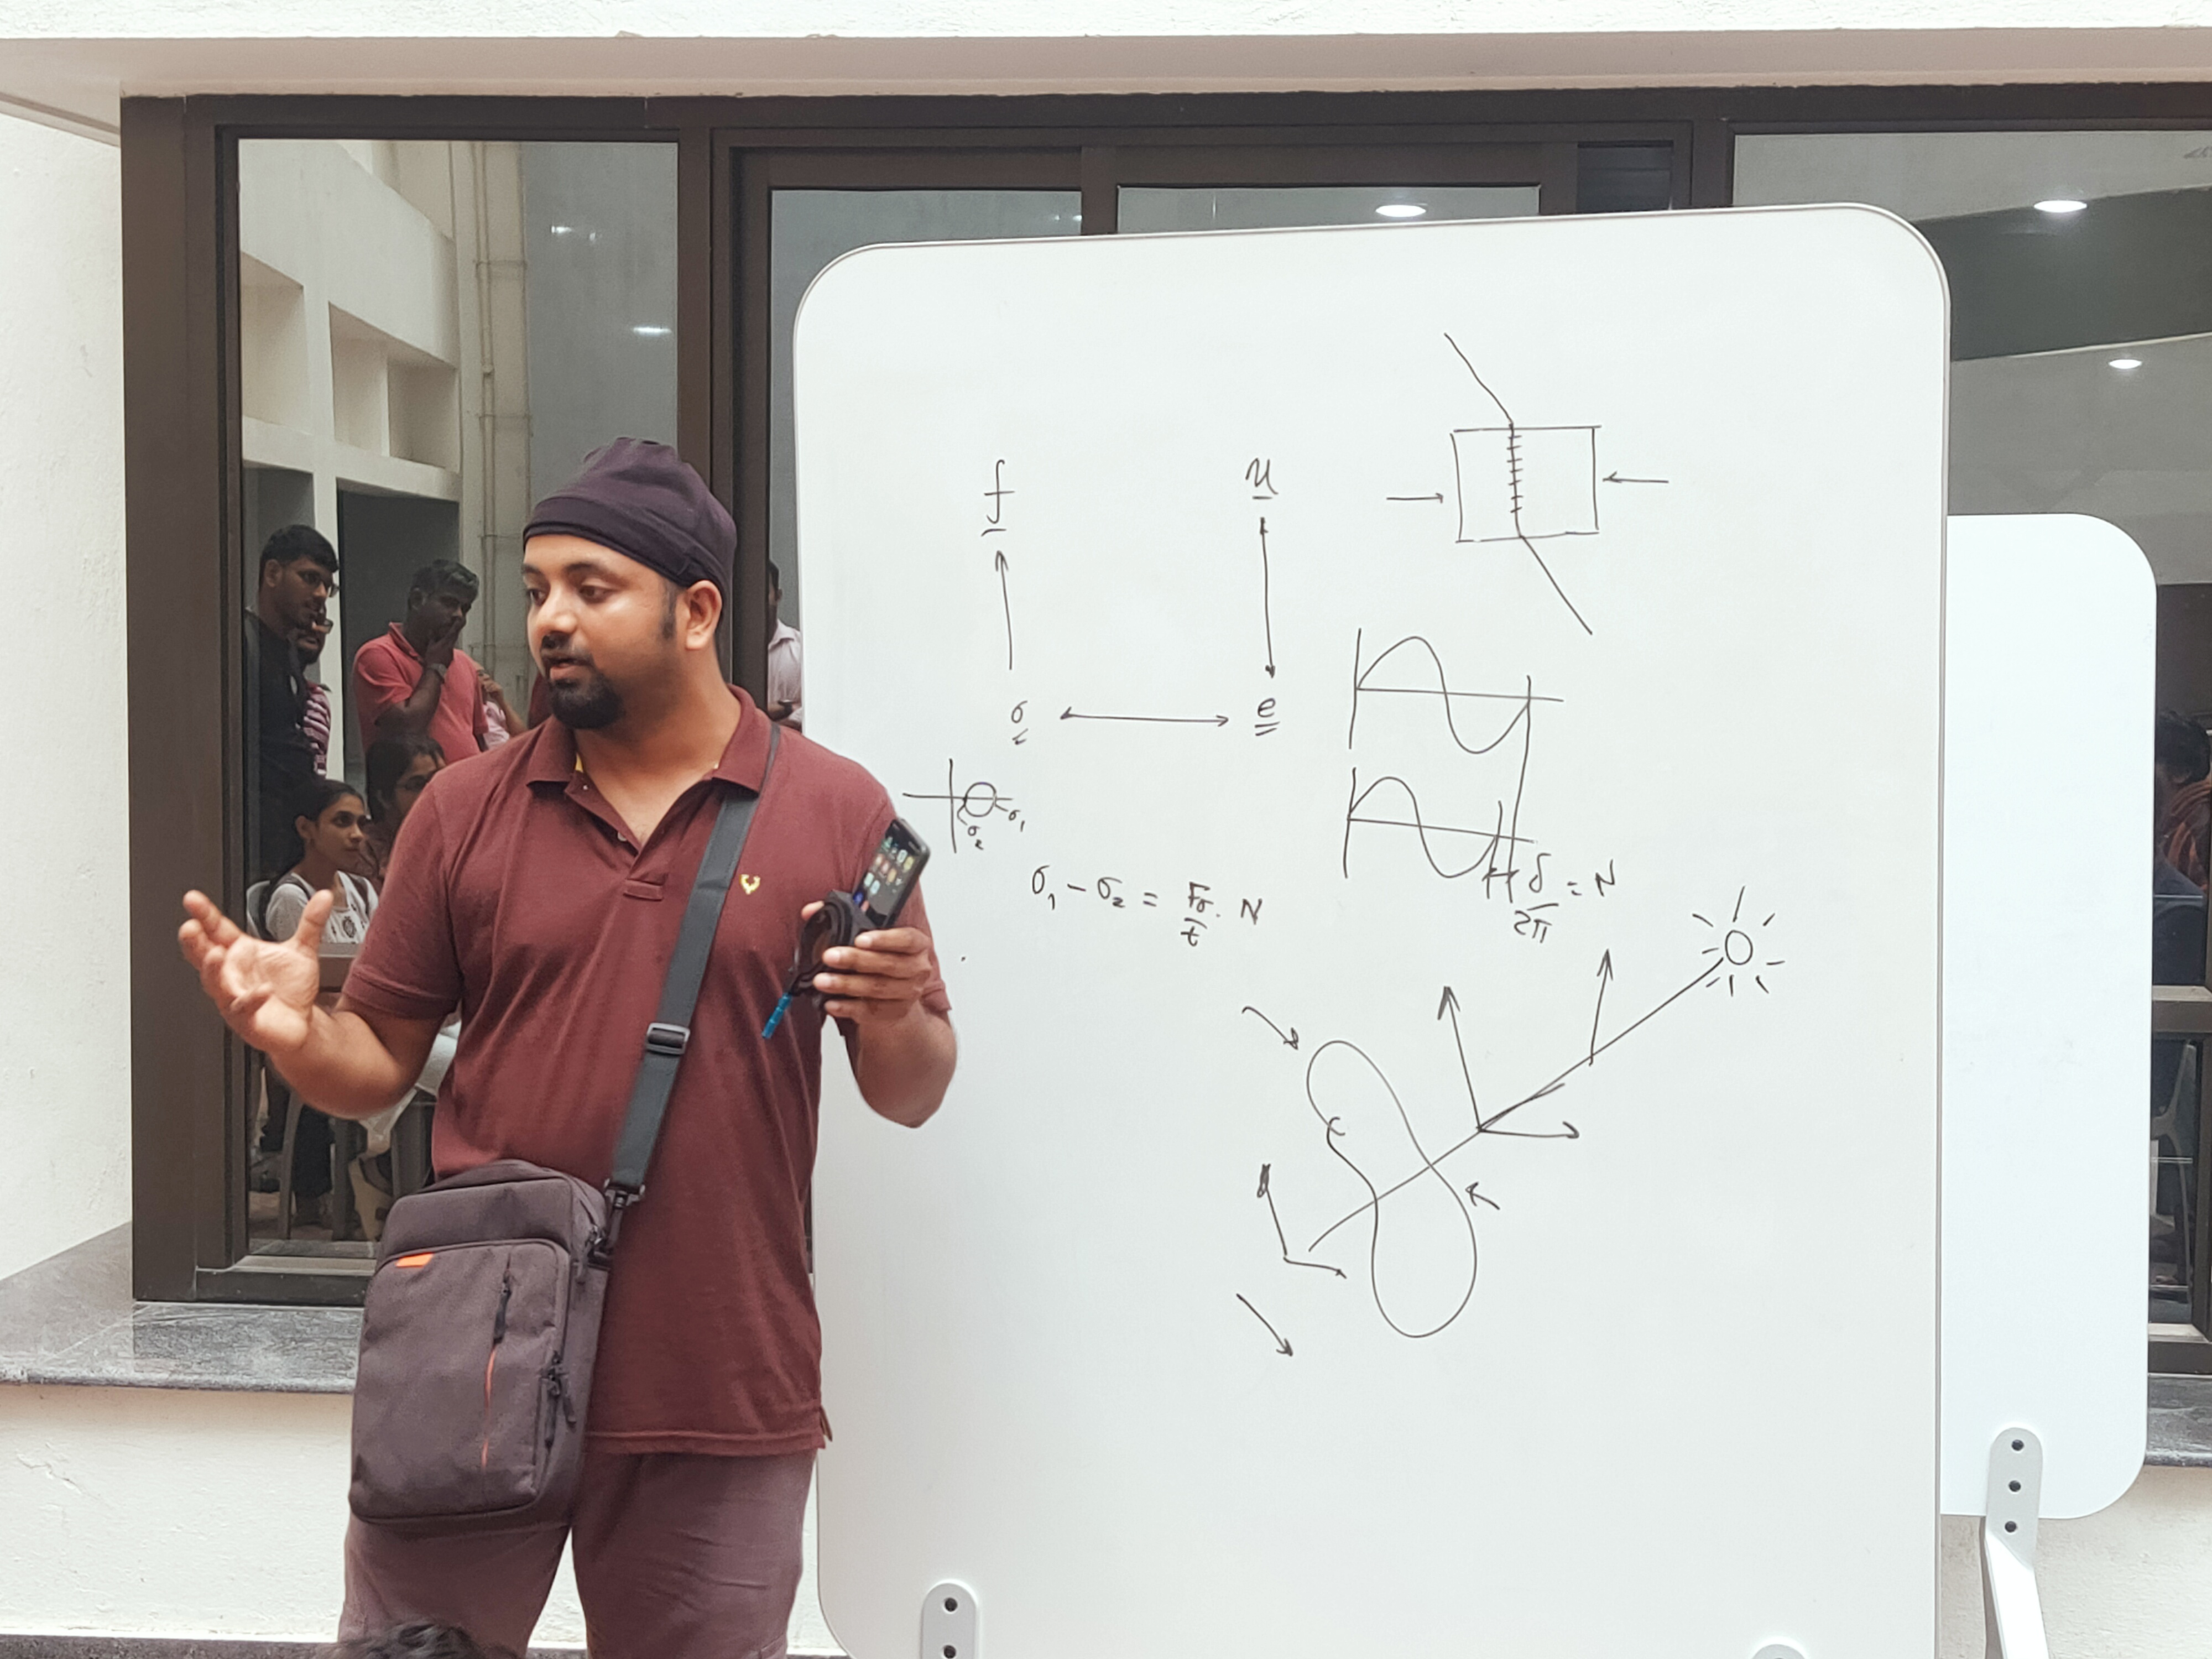 f u
σ e
σ₂ σ₁
σ₁ - σ₂ = Fσ/t · N
δ/2π = N